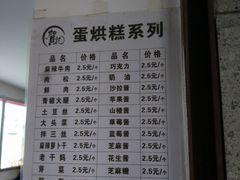 蛋烘糕系列
品名 价格 品名 价格
麻辣牛肉 2.5元/个 巧克力 2.5元/个
肉松 2.5元/个 奶油 2.5元/个
鲜肉 2.5元/个 沙拉酱 2.5元/个
青椒火腿 2.5元/个 苹果酱 2.5元/个
土豆丝 2.5元/个 山楂酱 2.5元/个
大头菜 2.5元/个 草莓酱 2.5元/个
拌三丝 2.5元/个 蓝莓酱 2.5元/个
麻辣萝卜干 2.5元/个 芝麻酱 2.5元/个
老干妈 2.5元/个 花生酱 2.5元/个
芽菜 2.5元/个 芝麻糖 2.5元/个